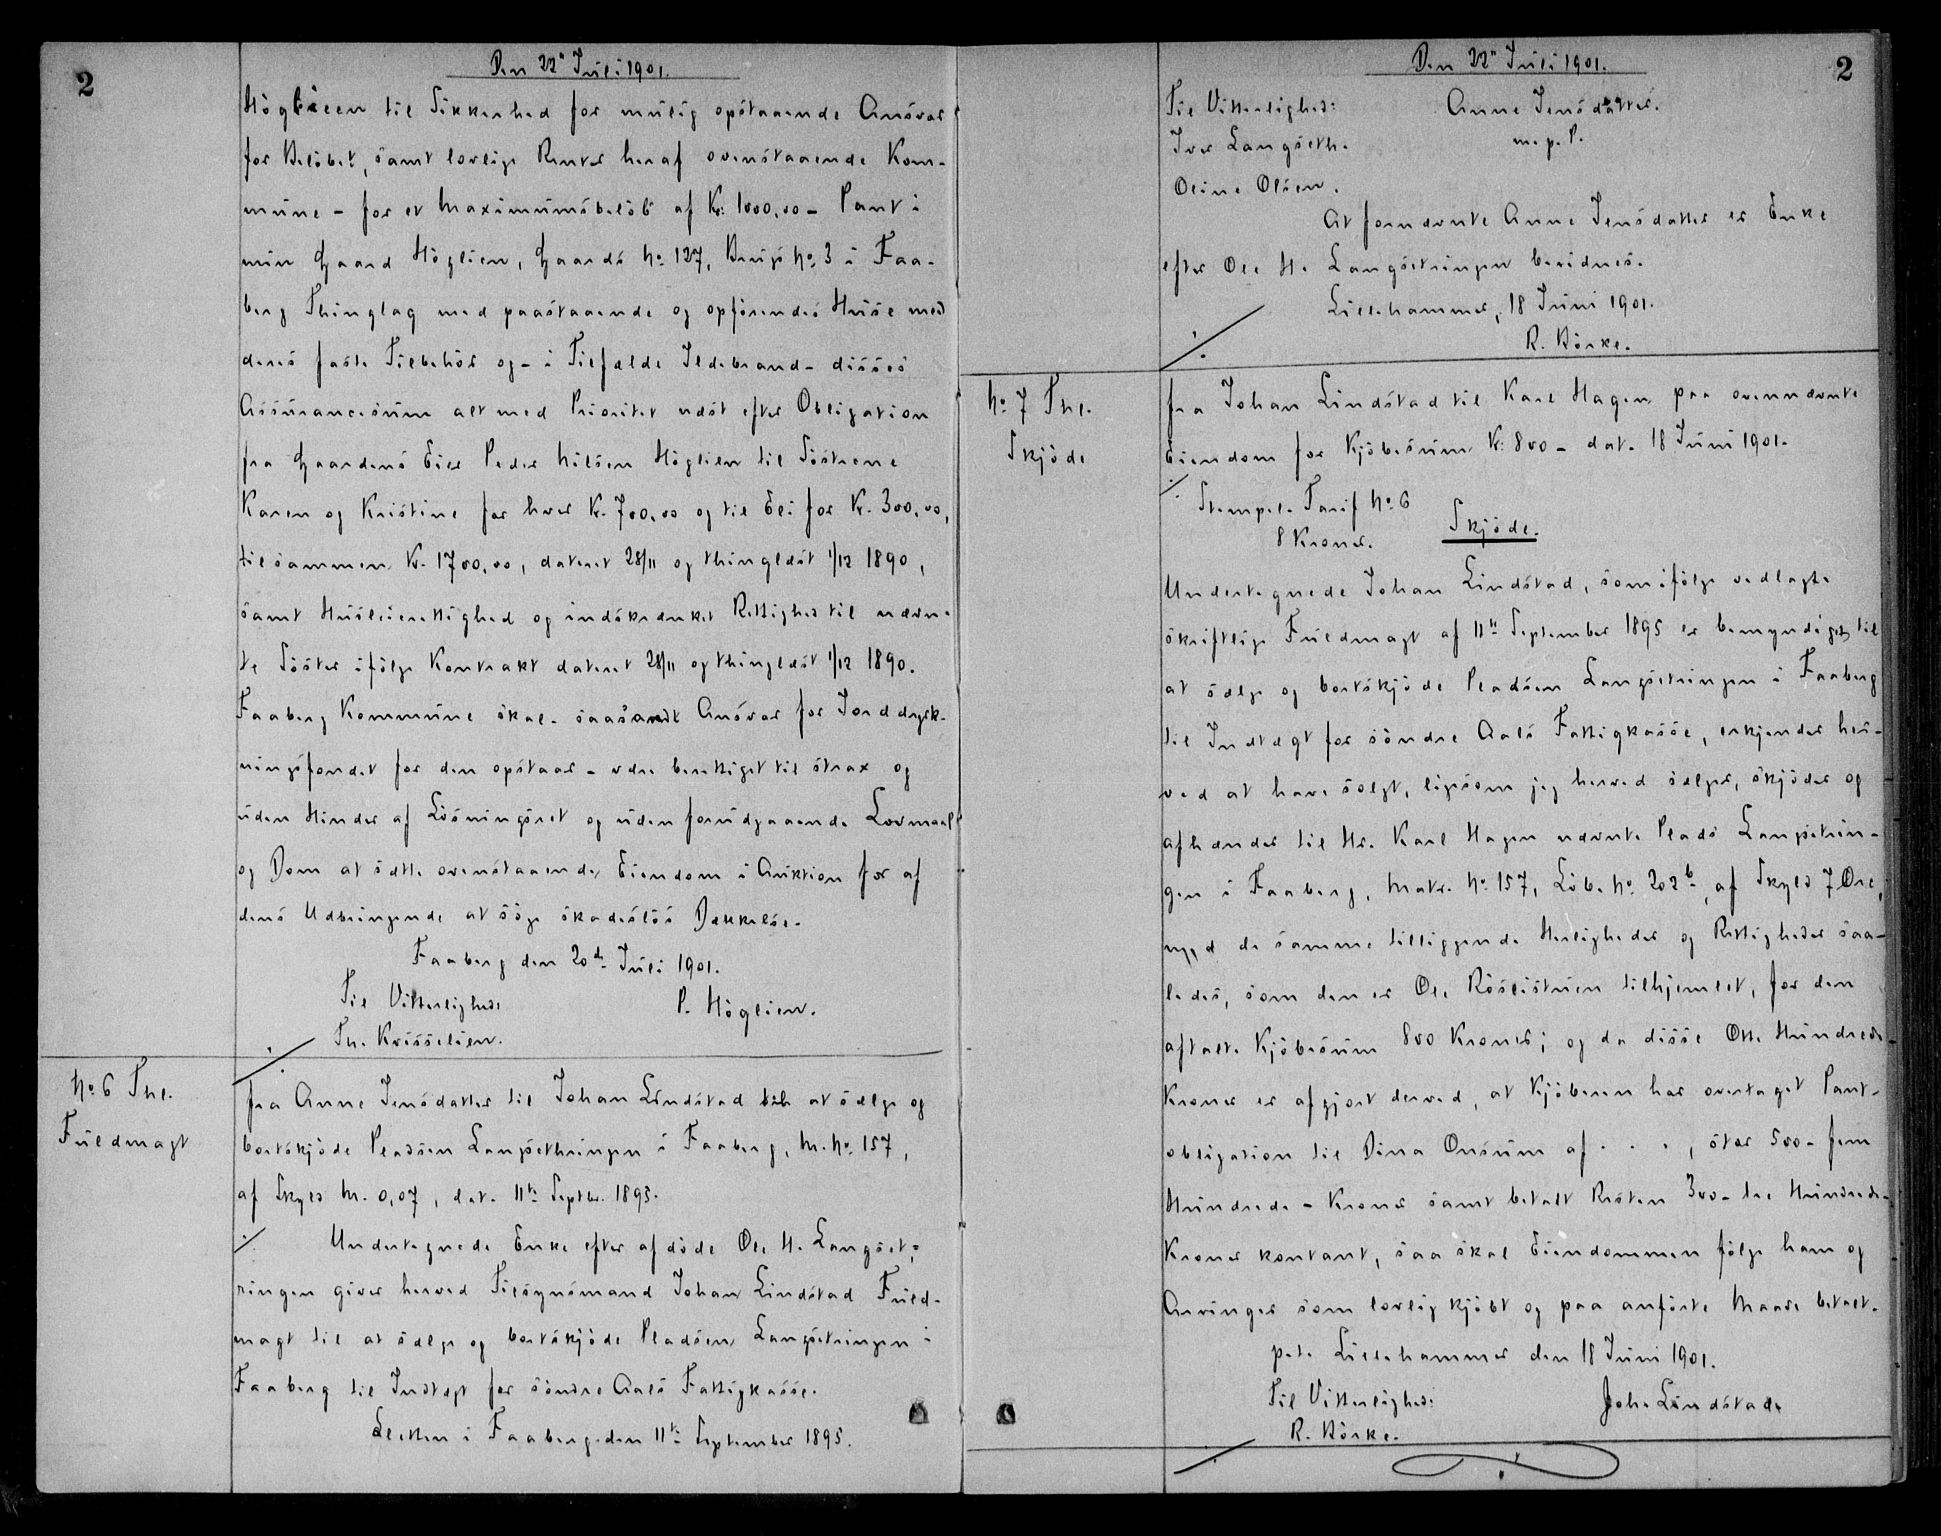 2
Den 22de Juli 1901.
Höglien til Sikkerhed for mulig opstaaende Ansvar
for Belöbet, samt lovlige Renter heraf ovenstaaende Kom-
mune - for et Maximumsbelöb af Kr. 1000,00 - Pant i
min Gaard Höglien, Gaards No. 127, Brugs No. 3 i Faa-
berg Thinglag med paastaaende og opförendes Huse med
deres faste Tilbehör og - i Tilfælde Ildebrand - disses
Assurancesum alt med Prioritet næst efter Obligation
fra Gaardens Eier Peder Nilsen Höglien til Söstrene
Karen og Kristine for hver Kr. 700,00 og til Eli for Kr. 300,00,
tilsammen Kr. 1700,00, dateret 28/11 og thinglæst 1/12 1890,
samt Husleierettighed og indskrænket Rettighed til nævn-
te Söster ifölge Kontrakt dateret 28/11 og thinglæst 1/12 1890.
Faaberg Kommune skal - saasandt Ansvar for Jorddyrk-
ningsfondet for den opstaar - være berettiget til strax og
uden Hinder af Lösningsret og uden forudgaaende Lovmaal
og Dom at sætte ovenstaaende Eiendom i Auktion for af
dens Udbringende at söge skadeslös Dækkelse.
Faaberg den 20de Juli 1901.
Til Vitterlighed: P. Höglien.
Th. Krisselien.
No. 6 Thl.
Fuldmagt
fra Anne Jensdatter til Johan Lindstad til at sælge og
bortskjöde Pladsen Langsethringen i Faaberg, M. No. 157,
af Skyld M. 0,07, dat. 11te Septbr. 1895.
Undertegnede Enke efter afdöde Ole H. Langset-
ringen giver herved Tilsynsmand Johan Lindstad Fuld-
magt til at sælge og bortskjöde Pladsen Langsetringen i
Faaberg til Indtægt for söndre Aals Fattigkasse.
Sletten i Faaberg den 11te September 1895.
Den 22de Juli 1901.
2
Til Vitterlighed: Anne Jensdatter.
Iver Langseth. m. p. P.
Oline Olsen.
At fornævnte Anne Jensdatter er Enke
efter Ole H. Langsetringen bevidnes.
Lillehammer, 18 Juni 1901.
R. Börke.
No. 7 Thl.
Skjöde
fra Johan Lindstad til Karl Hagen paa ovennævnte
Eiendom for Kjöbesum Kr. 800 - dat. 18 Juni 1901.
Stempel. Tarif No. 6
8 Kroner. Skjöde.
Undertegnede Johan Lindstad, som ifölge vedlagte
skriftlige Fuldmagt af 11te September 1895 er bemyndiget til
at sælge og bortskjöde Pladsen Langsetringen i Faaberg
til Indtægt for söndre Aals Fattigkasse, erkjender her-
ved at have solgt, ligesom jeg herved sælger, skjöder og
afhænder til Hr. Karl Hagen nævnte Plads Langsetrin-
gen i Faaberg, Matr. No. 157, Löb. No. 202b, af Skyld 7 Öre,
med de samme tilliggende Herligheder og Rettigheder saa-
ledes, som den er Ole Röslistuen tilhjemlet, for den
aftalte Kjöbesum 800 Kroner; og da disse Otte Hundrede
Kroner er afgjort derved, at Kjöberen har overtaget Pant-
obligation til Dina Onsum af . . . , stor 500 - fem
Hundrede - Kroner samt betalt Resten 300 - tre Hundrede -
Kroner kontant, saa skal Eiendommen fölge ham og
Arvinger som lovlig kjöbt og paa anförte Maade betalt.
p. t. Lillehammer den 18 Juni 1901.
Til Vitterlighed: Joh. Lindstad.
R. Börke.